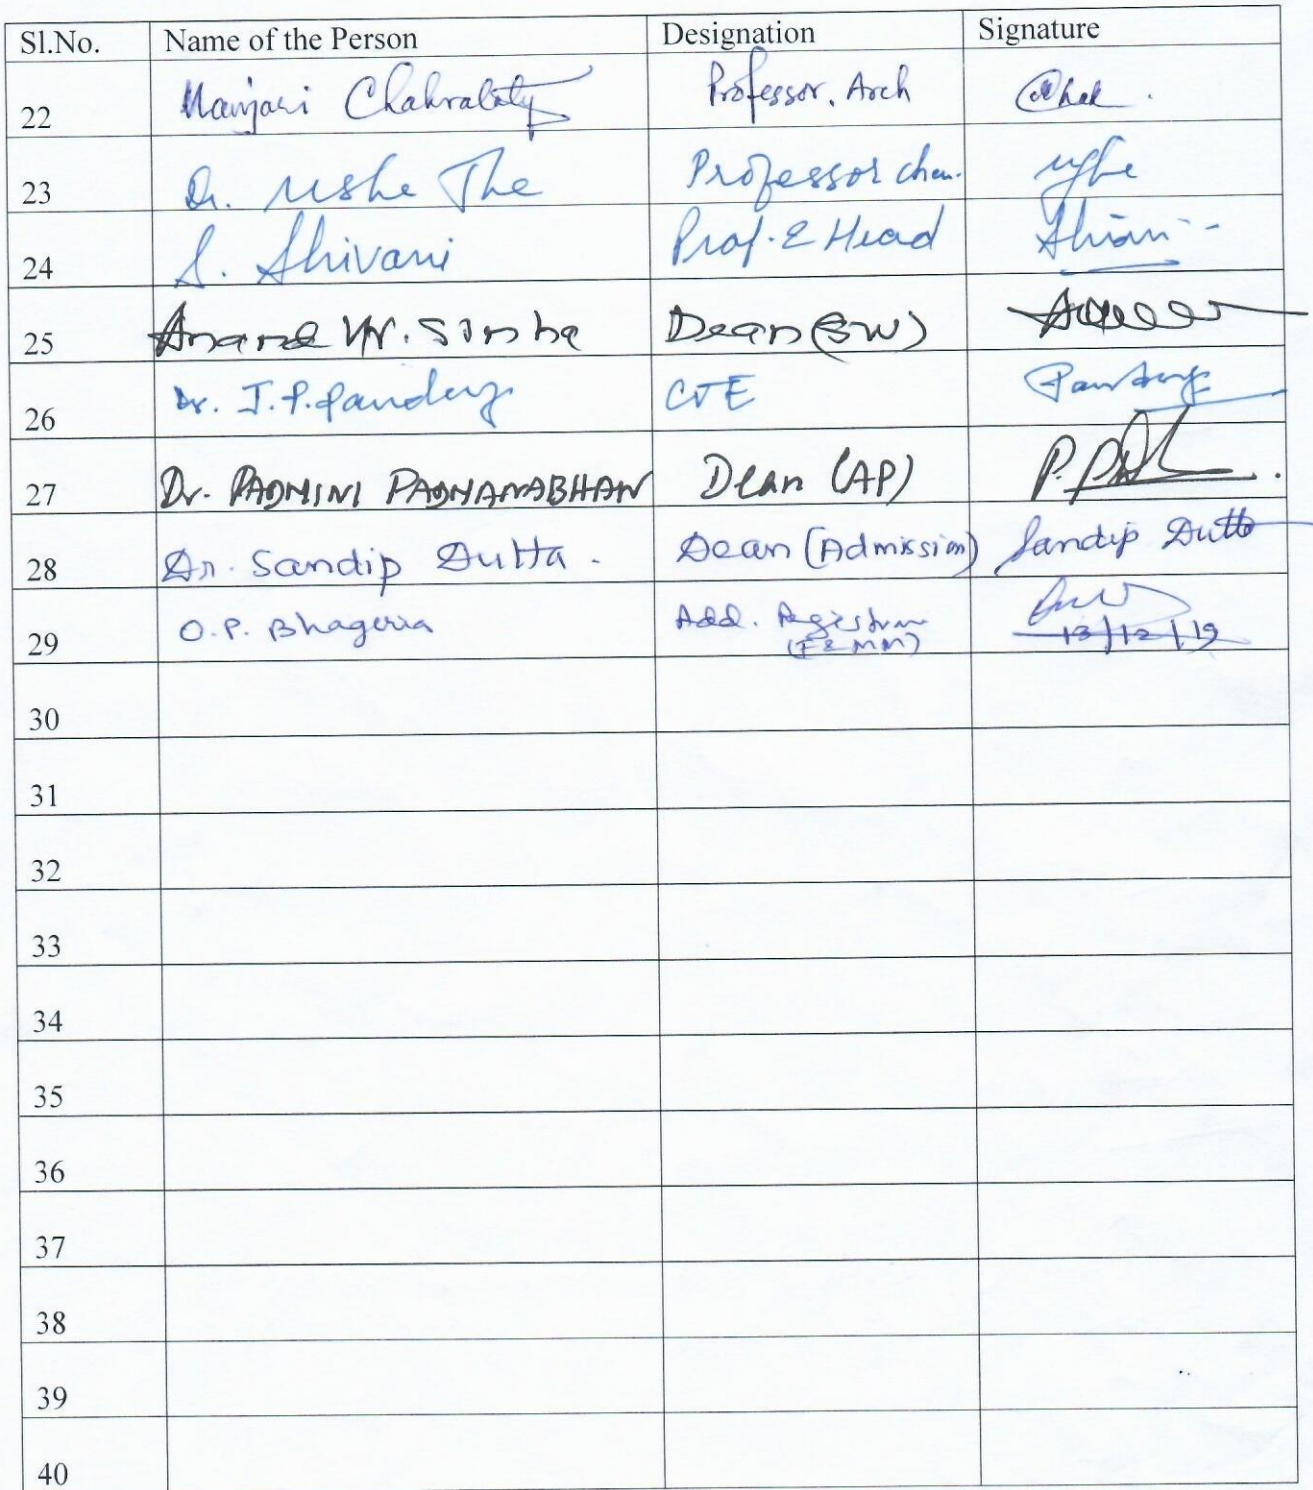 Sl.No. Name of the Person Designation Signature
22 Manjari Chakraborty Professor, Arch
23 Dr. Usha Jha Professor chem.
24 S. Shivani Prof. & Head
25 Anand Kr. Sinha Dean (SW)
26 Dr. J.P. Pandey CTE
27 Dr. PADMINI PADMANABHAN Dean (AP)
28 Dr. Sandip Dutta. Dean (Admission) Sandip Dutta
29 O.P. Bhageria Add. Registrar
(F&MM) 13/12/19
30
31
32
33
34
35
36
37
38
39
40